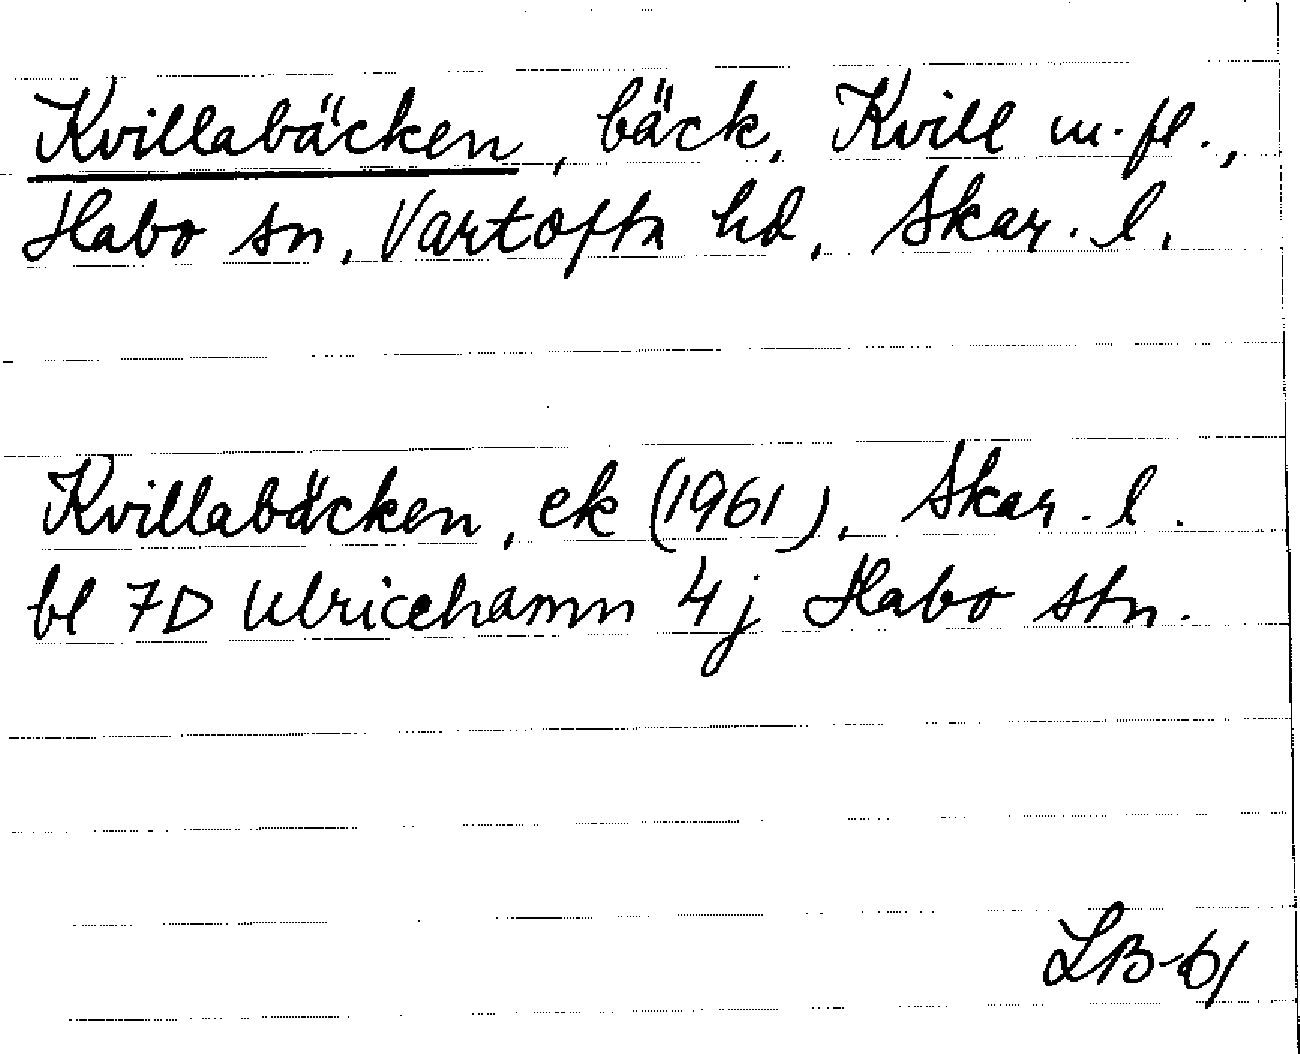 Kvillabäcken, bäck, Kvill m.fl.,
Habo sn, Vartofta hd, Skar. l.
Kvillabäcken, ek (1961), Skar. l.
bl 7D Ulricehamn 4j Habo stn.
LB-61